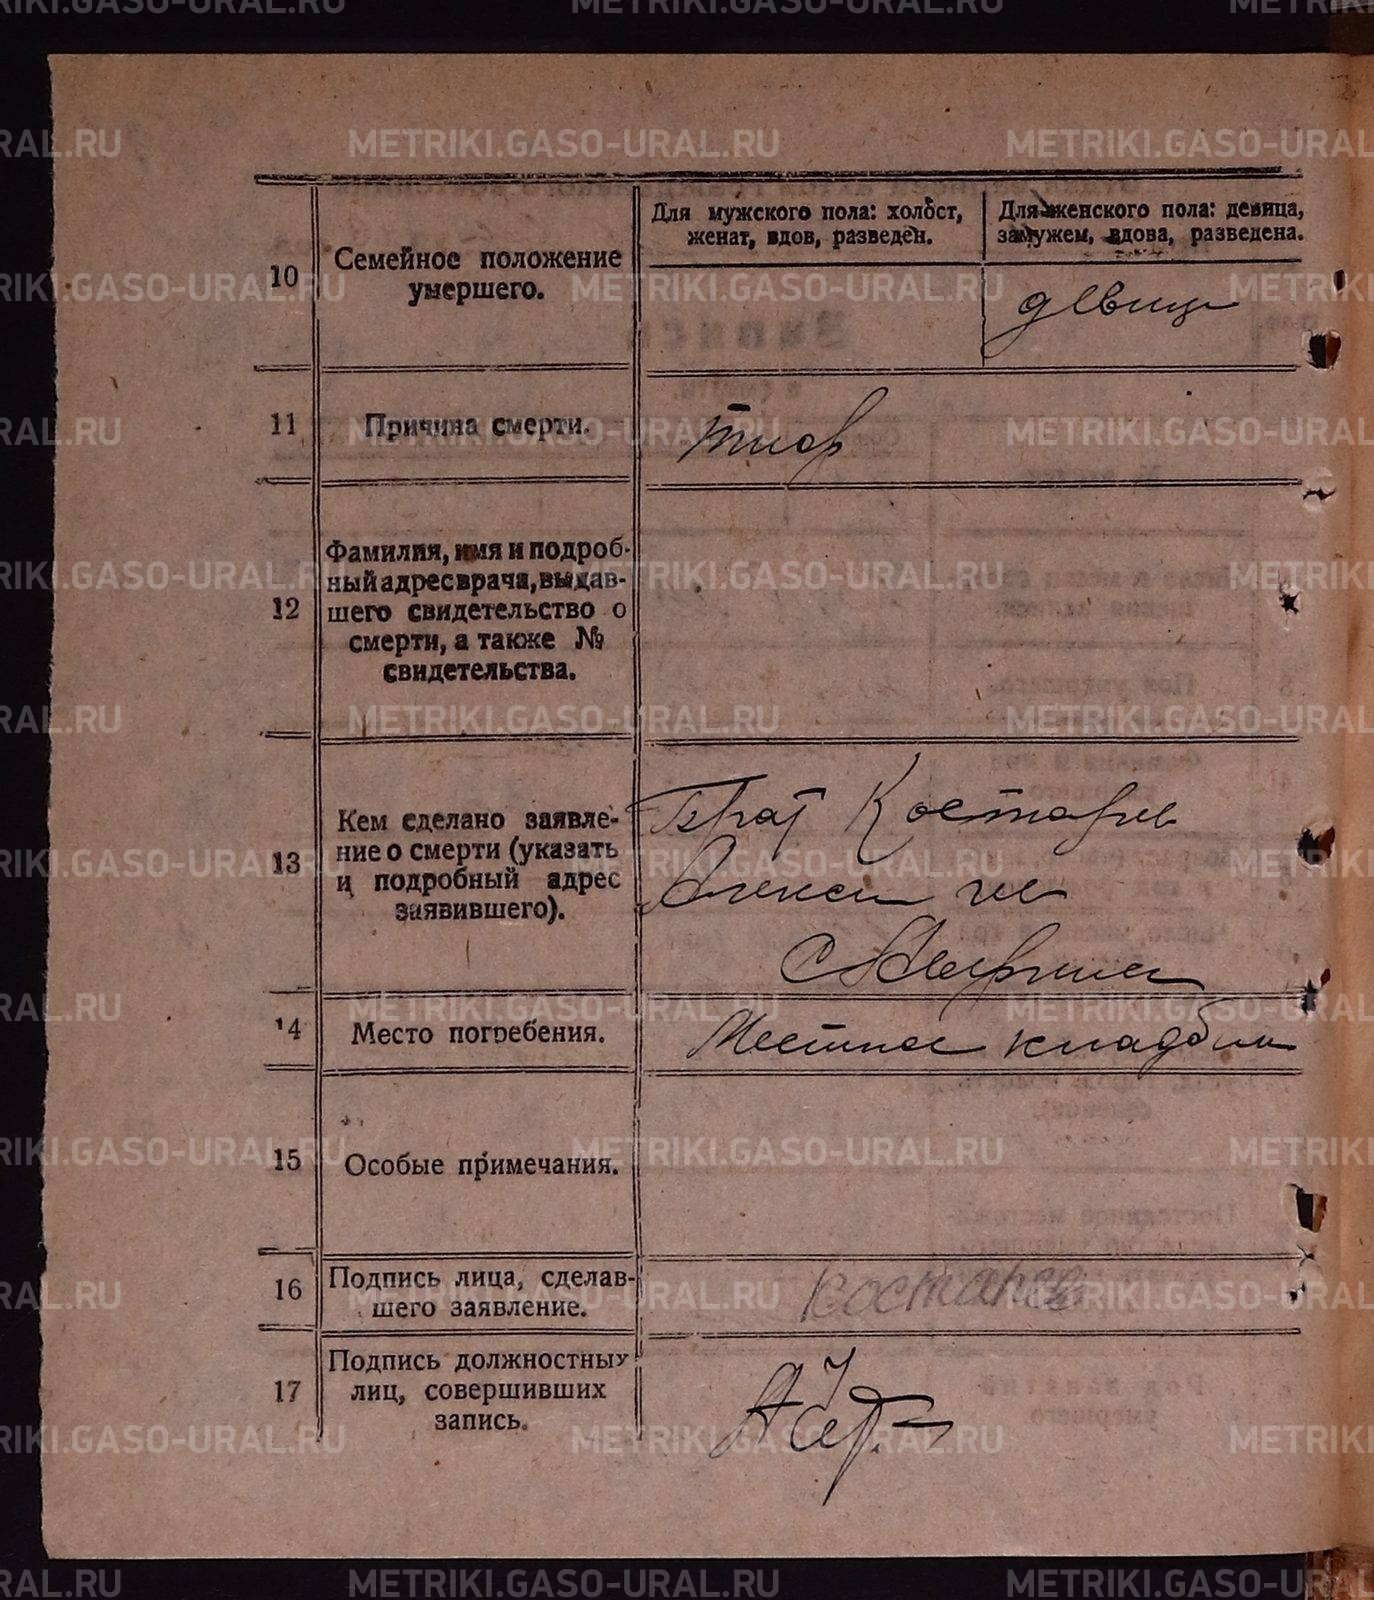 Для мужского пола: холост,
женат, вдов, разведен.
Для женского пола: девица,
замужем, вдова, разведена.
10
Семейное положение
умершего.
девица
11
Причина смерти.
тиф
12
Фамилия, имя и подроб-
ный адрес врача, выдав-
шего свидетельство о
смерти, а также №
свидетельства.
13
Кем сделано заявле-
ние о смерти (указать
и подробный адрес
заявившего).
Брат Костарев
Алексей
14
Место погребения.
Местное кладбище
15
Особые примечания.
16
Подпись лица, сделав-
шего заявление.
Костарев
17
Подпись должностных
лиц, совершивших
запись.
METRIKI.GASO-URAL.RU